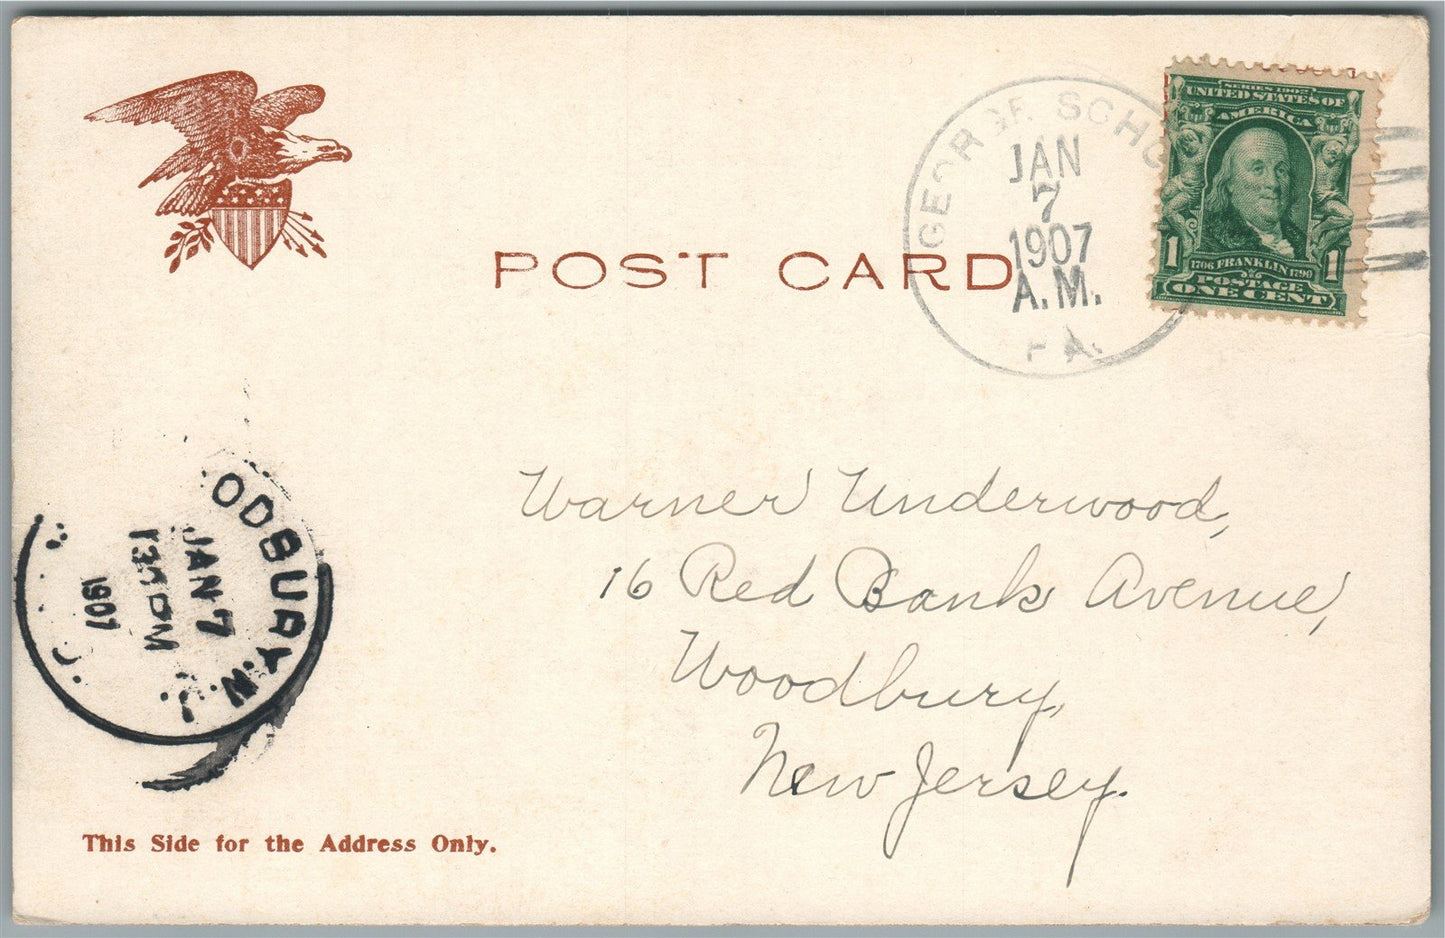 GEORGE SCHO
JAN
7
1907
A.M.
PA.
SERIES 1902
UNITED STATES OF
AMERICA
1706 FRANKLIN 1790
1 1
POSTAGE
ONE CENT
POST CARD
ODBURY, N.J.
JAN 7
PM
1907
Warner Underwood,
16 Red Bank Avenue,
Woodbury,
New Jersey.
This Side for the Address Only.